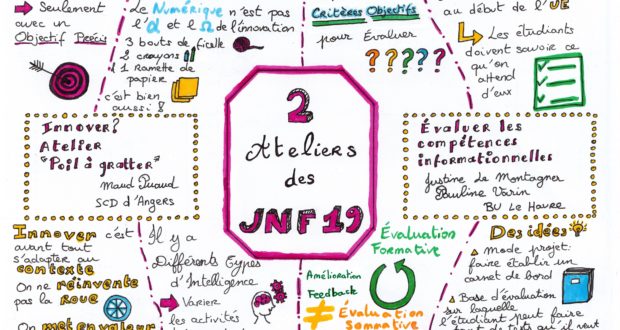 → Seulement
avec un
Objectif Précis
Le Numérique n'est pas
l'α et l'Ω de l'innovation
3 bouts de ficelle
2 crayons
1 Ramette de
papier
c'est bien
aussi !
Critères Objectifs
pour Évaluer
? ? ? ? ?
au début de l'UE
↳ Les étudiants
doivent savoir ce
qu'on
attend
d'eux
Innover?
Atelier
"Poil à gratter"
Maud Puaud
SCD d'Angers
2
Ateliers
des
JNF 19
Évaluer les
compétences
informationnelles
Justine de Montagner
Pauline Varin
BU Le Havre
Innover c'est
avant tout
s'adapter au
contexte
On ne réinvente
pas la roue
On met en valeur
Il y a
Différents Types
d'Intelligence
→ Varier
les activités
Évaluation
Formative
Amélioration
Feedback
≠ Évaluation
Sommative
Des idées
mode projet:
faire établir un
carnet de bord
Base d'évaluation
sur laquelle
l'étudiant peut faire